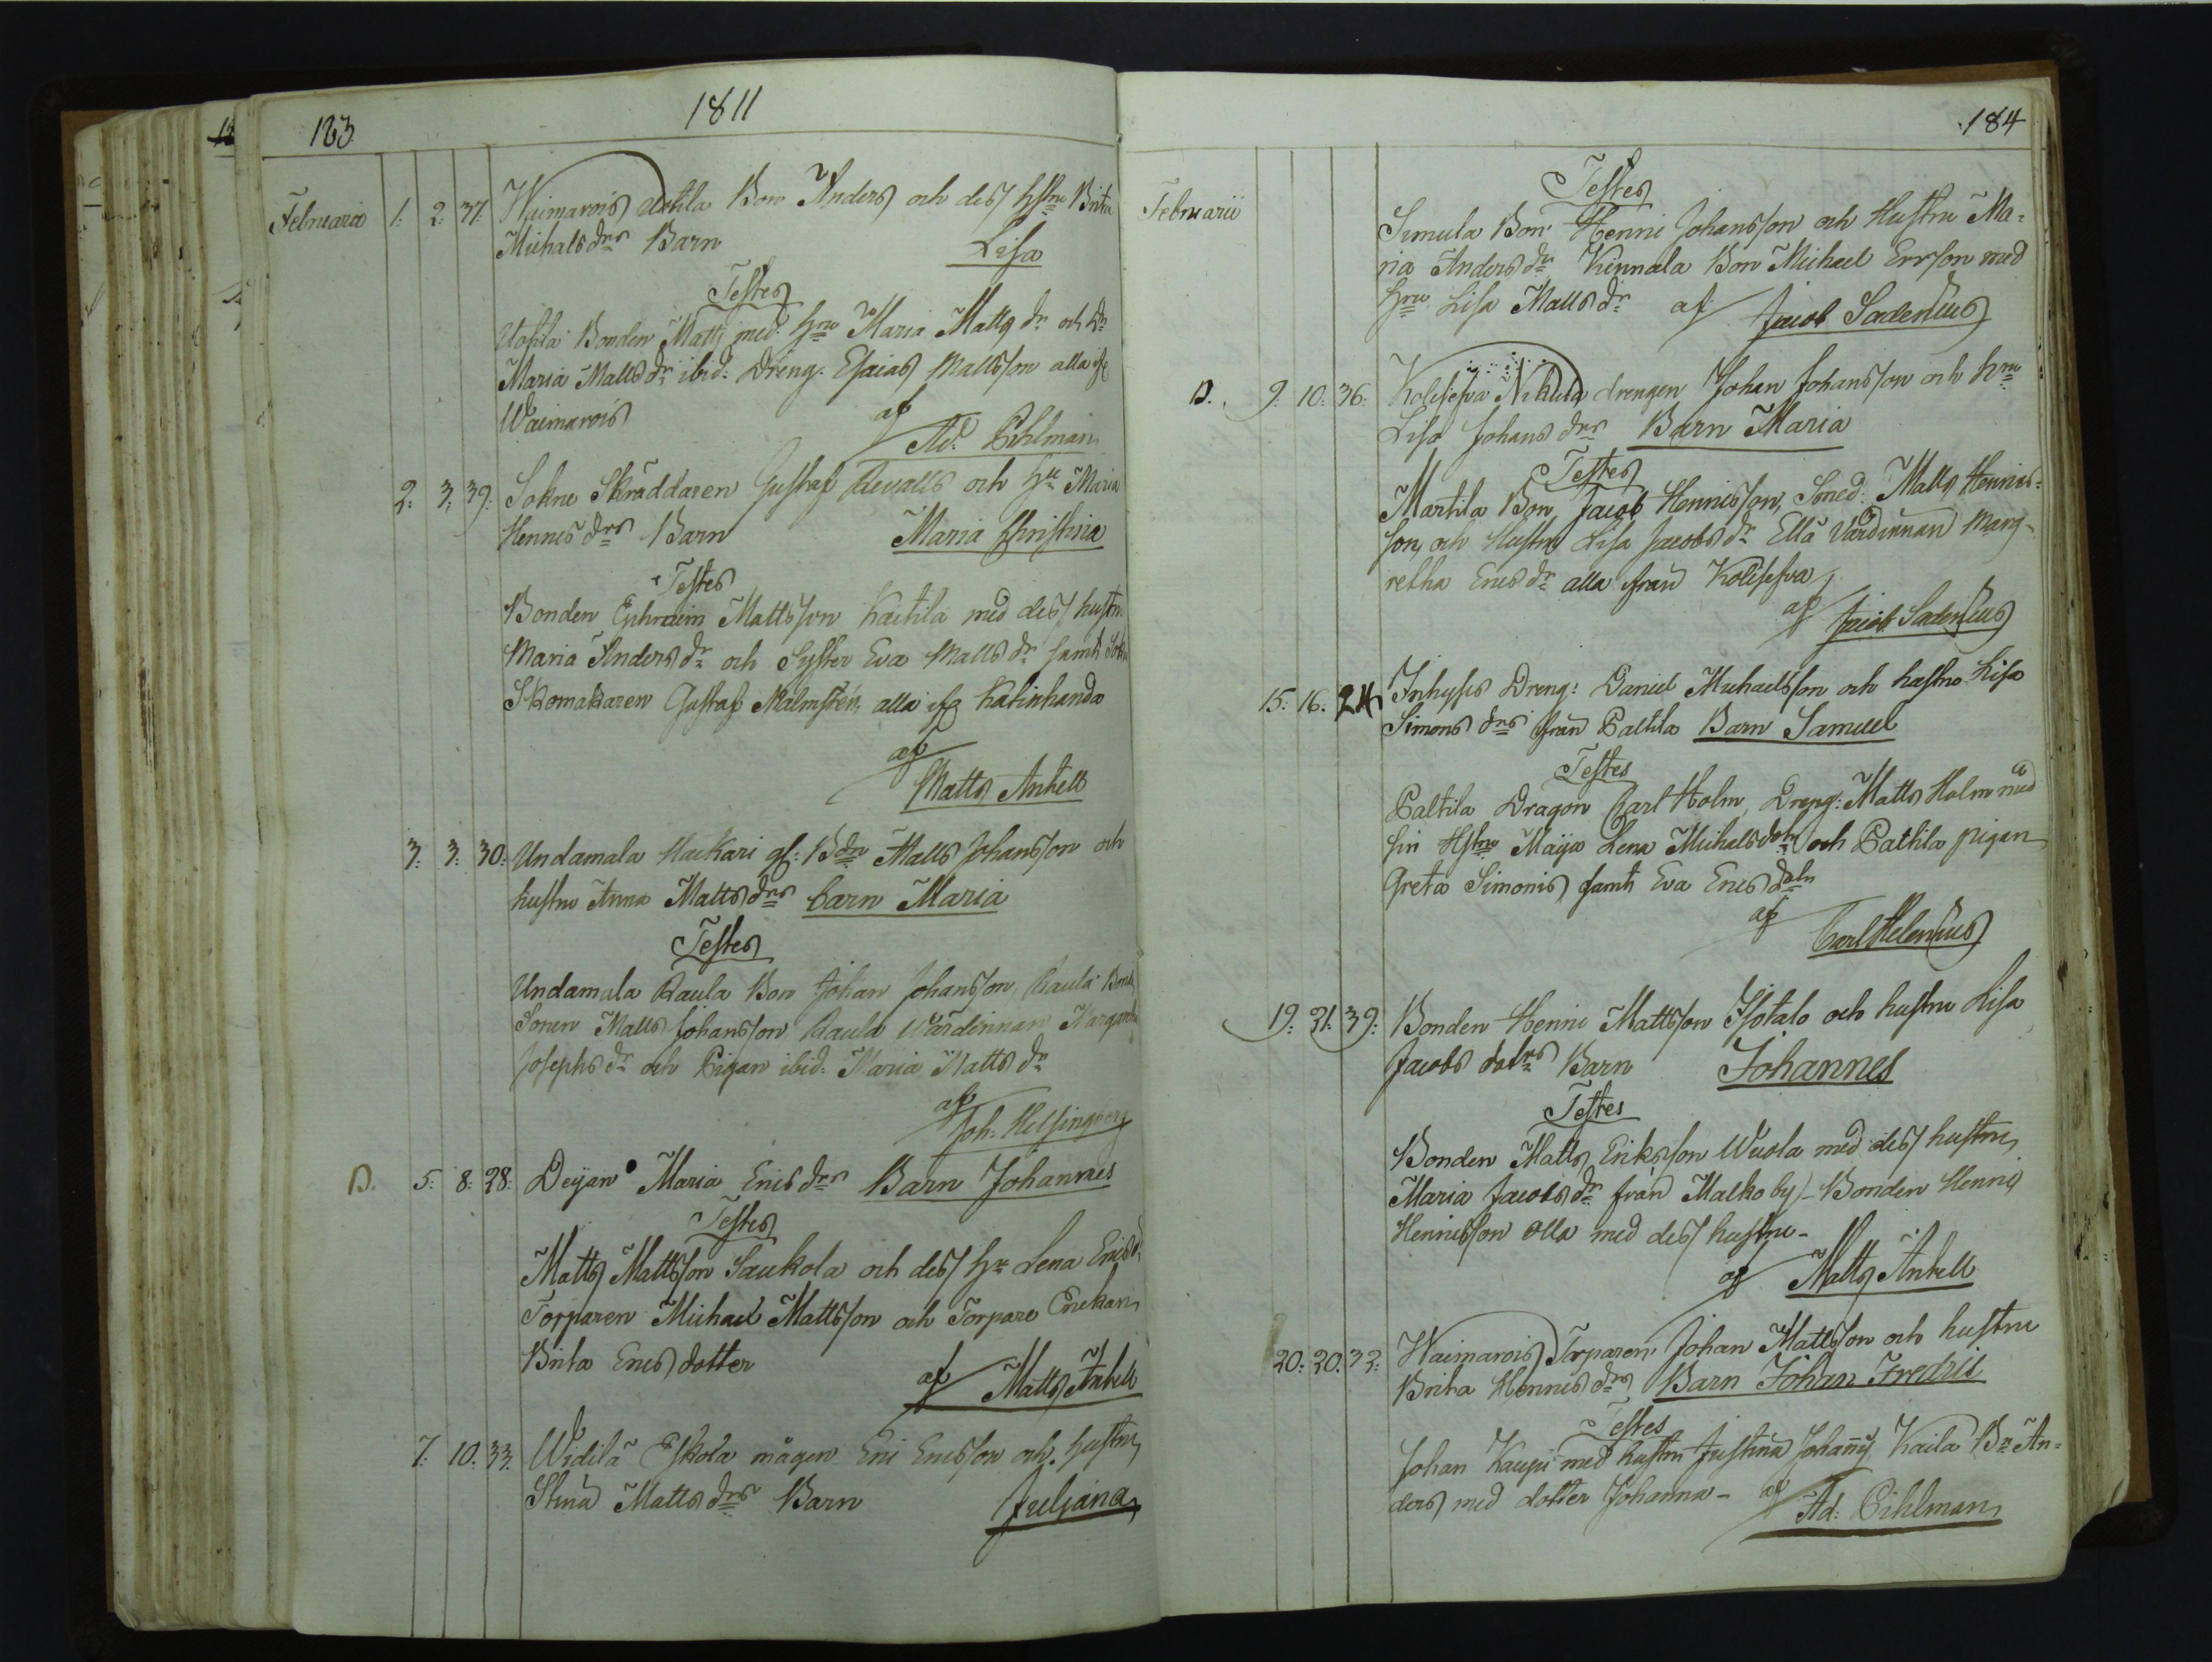 183
1811
Februarii 1: 2: 37: Waimarois Uotila Bon Anders och dess hstru Brita
Michelsdrs Barn Lisa
Testes
Uotila Bonden Matts med hru Maria Matts dr och Dr
Maria Matts dr ibid: Dreng: Esaias Mattsson alla ifr
Waimarois
af
Ad: Pihlman
2: 3: 39: Sokne Skräddaren Gustaf Revalls och Hu Maria
Hennes drs Barn Maria Christina
Testes
Bonden Ephraim Mattsson Kaitila med dess hustru
Maria Anders dr och Syster Eva Matts dr samt Sokn
Skomakaren Gustaf Malmsten, alla ifr Katinhanda
af
Matts Antell
3: 3: 30: Undamala Hackari gl: Bdn Matts Johansson och
hustru Anna Matts drs barn Maria
Testes
Undamala Raula Bon Johan Johansson, Raula Bonde
Sonen Matts Johansson, Raula Värdinnan Margareta
Josephs dr och Pigan ibid: Maria Matts dr
af
Joh: Helsingberg
D. 5: 8: 28: Deijan Maria Erics drs Barn Johannes
Testes
Matts Mattsson Saukola och dess Hu Lena Ericsd
Torparen Michael Mattsson och Torpare Enekan
Brita Erics dotter
af Matts Antell
7: 10: 33: Widilä Eskola mågen Eric Ericsson och hustru
Stina Matts drs Barn Juljana
184
Februarii
Testes
Simula Bon Henric Johansson och Hustru Ma=
ria Anders dr Kinnala Bon Michael Ersson med
Hru Lisa Matts dr af Jacob Sadenius
D. 9: 10: 36: Kolisefva Nikkila drengen Johan Johansson och hru
Lisa Johans drs Barn Maria
Testes
Martila Bon Jacob Hennisson, Smed: Matts Hennis=
son, och Hustru Lisa Jacobs dr Ella Värdinnan Marg=
retha Erics dr alla från Kolisefva
af Jacob Sadenius
15: 16: 24 Inhyses Dreng: Daniel Michaelsson och hustru Lisa
Simons drs från Paltila Barn Samuel
Testes
Paltila Dragon Carl Holm, Dreng: Matts Holm med
sin Hstru Maija Lena Michelsdotr och Paltila pigan
Greta Simonis samt Eva Erics dotr
af
Carl Helenius
19: 21: 39: Bonden Henric Mattsson Isotalo och hustru Lisa
Jacobs dotrs Barn Johannes
Testes
Bonden Matts Eriksson Wuola med dess hustru
Maria Jacobs dr från Malko by - Bonden Henric
Hennisson Olla med dess hustru -
af Matts Antell
20: 20: 32: Waimarois Torparen Johan Mattsson och hustru
Brita Hennis drs Barn Johan Fredric
Testes
Johan Kaupi med hustru Justina Johans, Kaila Bn An=
ders med dotter Johanna - af
Ad: Pihlman